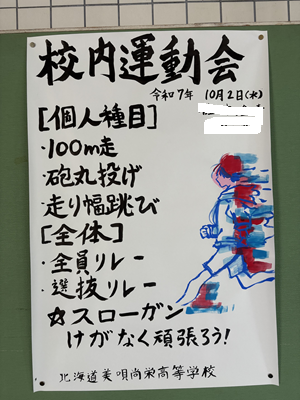 校内運動会
令和7年 10月2日(木)
[個人種目]
・100m走
・砲丸投げ
・走り幅跳び
[全体]
・全員リレー
・選抜リレー
☆スローガン
けがなく頑張ろう!
北海道美唄尚栄高等学校